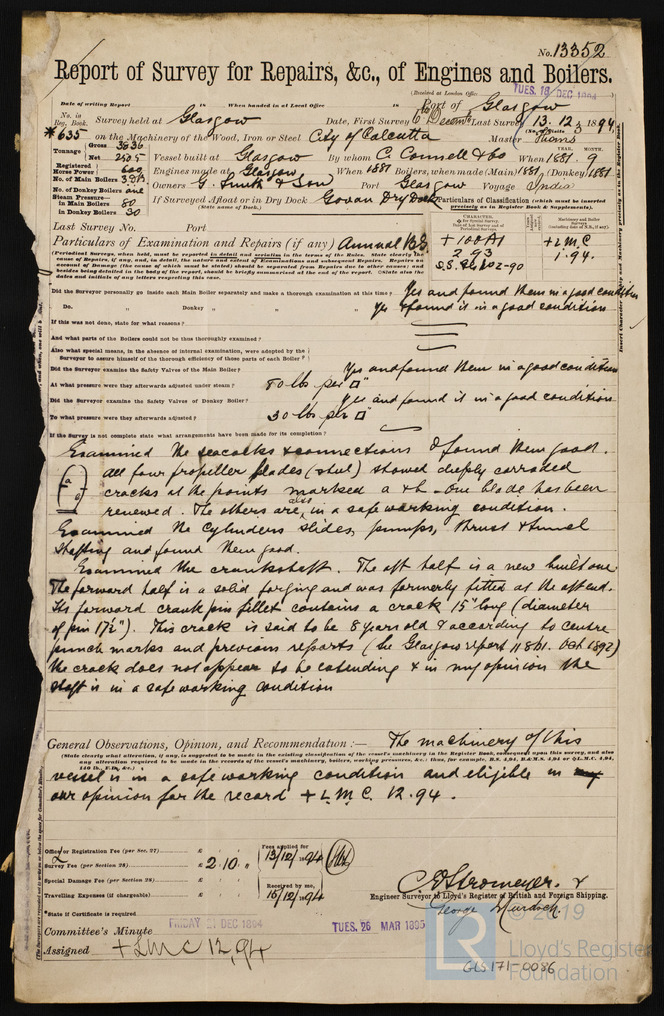 No. 13352
Report of Survey for Repairs, &c., of Engines and Boilers.
(Received at London Office
TUES. 18 DEC 1894
Date of writing Report 18 When handed in at Local Office 18 Port of Glasgow
No. in Reg. Book. Survey held at Glasgow Date, First Survey Last Survey 13. 12. 1894
*635 on the Machinery of the Wood, Iron or Steel City of Calcutta Master Thoms
(No. of Visits 3)
Tonnage Gross 3636
Net 2505 Vessel built at Glasgow By whom C. Connell & Co When 1881 . 9
YEAR. MONTH.
Registered Horse Power 600 Engines made at Glasgow When 1881 Boilers, when made (Main) 1881 (Donkey) 1881
No. of Main Boilers Owners G. Smith & Son Port Glasgow Voyage India
No. of Donkey Boilers one
Steam Pressure— in Main Boilers 80 If Surveyed Afloat or in Dry Dock Govan Dry Dock
(State name of Dock.)
in Donkey Boilers 30
Particulars of Classification (which must be inserted precisely as in Register Book & Supplements).
Last Survey No. Port
CHARACTER.
+ 100 A1
2.93
+ L.M.C
1.94.
Particulars of Examination and Repairs (if any) Annual BS
Did the Surveyor personally go inside each Main Boiler separately and make a thorough examination at this time? Yes and found them in a good condition
Do. " Donkey " " " Yes & found it in a good condition
If this was not done, state for what reasons?
And what parts of the Boilers could not be thoroughly examined?
Also what special means, in the absence of internal examination, were adopted by the Surveyor to assure himself of the thorough efficiency of those parts of each Boiler?
Did the Surveyor examine the Safety Valves of the Main Boiler? Yes and found them in a good condition
At what pressure were they afterwards adjusted under steam? 80 lbs per □"
Did the Surveyor examine the Safety Valves of Donkey Boiler? Yes and found it in a good condition
To what pressure were they afterwards adjusted? 30 lbs per □"
If the Survey is not complete state what arrangements have been made for its completion?
Examined the seacocks & connections & found them good.
All four propeller blades (steel) showed deeply corroded
cracks at the points marked a & b - One blade has been
renewed. The others are, also in a safe working condition.
Examined the cylinders slides, pumps, thrust & tunnel
shafting and found them good.
Examined the crankshaft. The aft half is a new built one
The forward half is a solid forging and was formerly fitted at the aft end.
Its forward crank pin fillet contains a crack 15" long (diameter
of pin 17½"). This crack is said to be 8 years old & according to centre
punch marks and previous reports (see Glasgow report 11861. Oct 1892)
the crack does not appear to be extending & in my opinion the
shaft is in a safe working condition
General Observations, Opinion, and Recommendation :— The machinery of this
(State clearly what alteration, if any, is suggested to be made in the existing classification of the vessel's machinery in the Register Book, consequent upon this survey, and also
any alteration required to be made in the records of the vessel's machinery, boilers, working pressures, &c.; thus, for example, B.S. 4,94 or B.&M.S. 4,94 or +L.M.C. 4,94,
140 lb., F.D., &c.)
vessel is in a safe working condition and eligible in my
our opinion for the record + L. M. C. 12.94.
Office or Registration Fee (per Sec. 27) £
Survey Fee (per Section 28) £ 2.10. "
Special Damage Fee (per Section 28) £
Travelling Expenses (if chargeable) £
Fees applied for
13/12/94
Received by me,
15/12/94
C. E. Stromeyer. &
Engineer Surveyor to Lloyd's Register of British and Foreign Shipping.
George Murdoch.
*State if Certificate is required
Committee's Minute FRIDAY 21 DEC 1894 TUES. 26 MAR 1895
Assigned + LMC 12,94
© 2019
LR
Lloyd's Register
Foundation
GLS171-0086